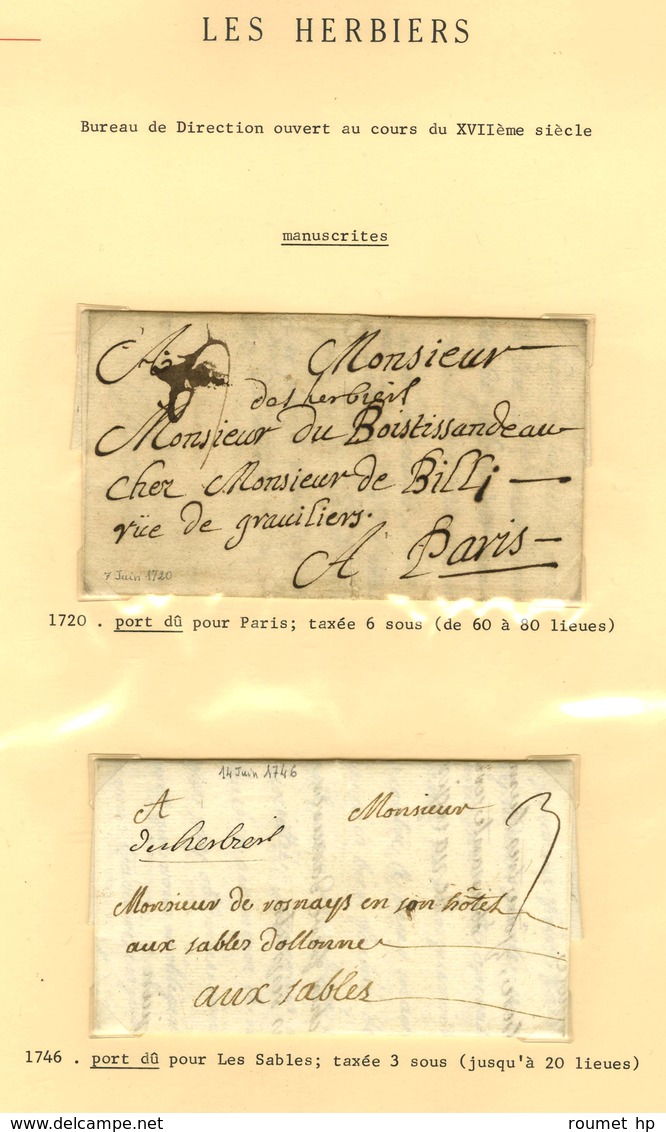 LES HERBIERS
Bureau de Direction ouvert au cours du XVIIème siècle
manuscrites
A Monsieur
desherbiers
Monsieur du Boistissandeau
chez Monsieur de Billi
rüe de graviliers.
A Paris
7 Juin 1720
1720 . port dû pour Paris; taxée 6 sous (de 60 à 80 lieues)
14 Juin 1746
A Monsieur 3
Monsieur de rosnays en son hôtel
aux sables dollonne
aux sables
1746 . port dû pour Les Sables; taxée 3 sous (jusqu'à 20 lieues)
www.delcampe.net
roumet hp